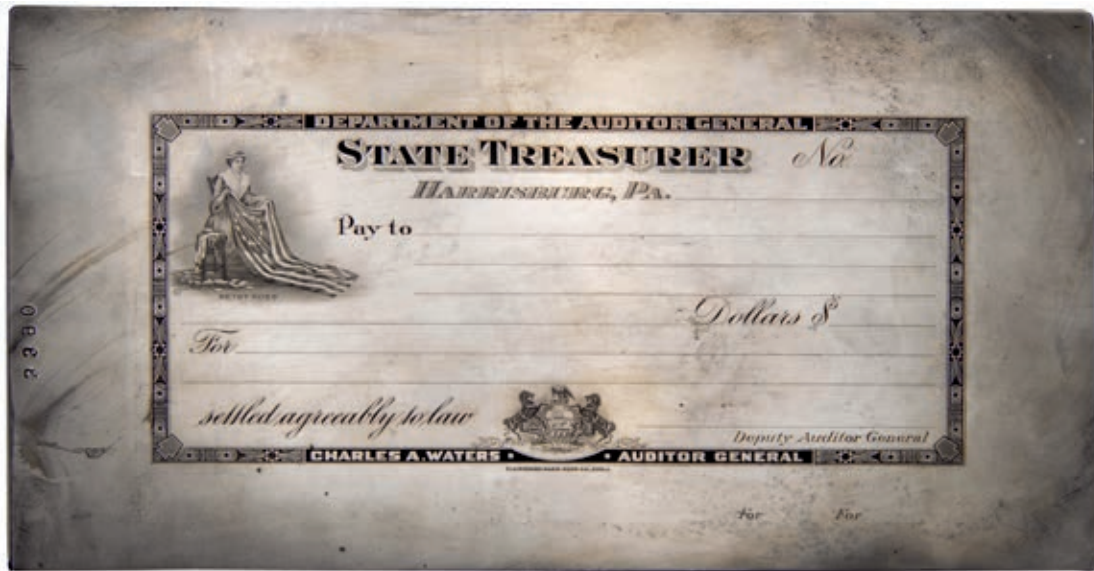 DEPARTMENT OF THE AUDITOR GENERAL
STATE TREASURER No.
HARRISBURG, PA.
Pay to
BETSY ROSS
Dollars $
For
settled agreeably to law
Deputy Auditor General
CHARLES A. WATERS • • AUDITOR GENERAL
For For
2380